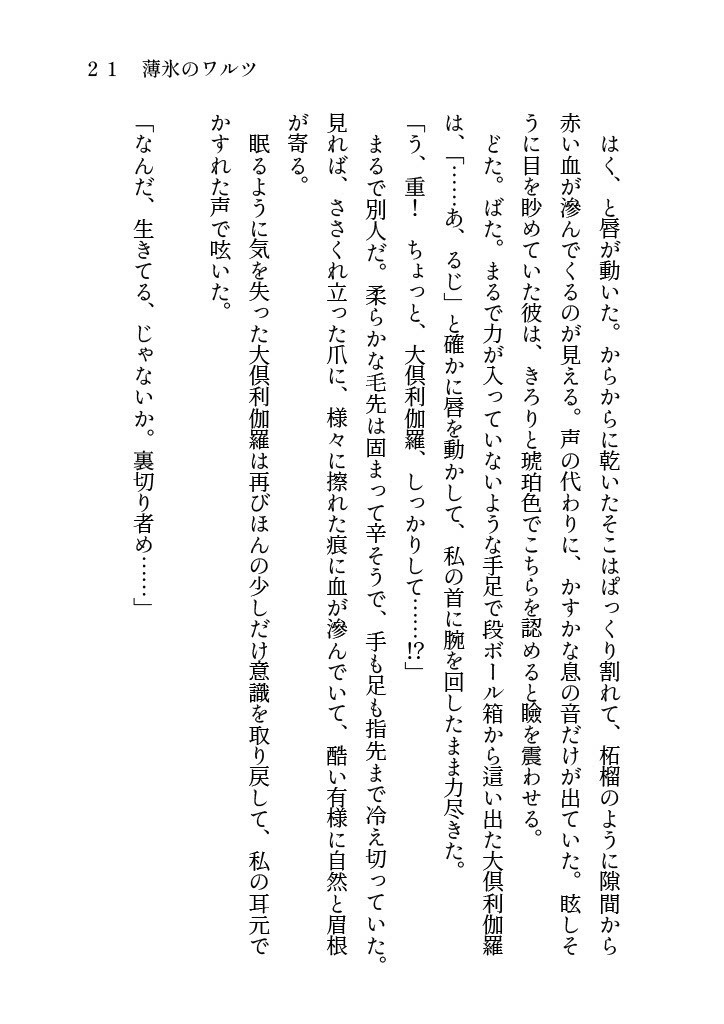 21　薄氷のワルツ
　はく、と唇が動いた。からからに乾いたそこはぱっくり割れて、柘榴のように隙間から
赤い血が滲んでくるのが見える。声の代わりに、かすかな息の音だけが出ていた。眩しそ
うに目を眇めていた彼は、きろりと琥珀色でこちらを認めると瞼を震わせる。
　どた。ばた。まるで力が入っていないような手足で段ボール箱から這い出た大倶利伽羅
は、「……あ、るじ」と確かに唇を動かして、私の首に腕を回したまま力尽きた。
「う、重！　ちょっと、大倶利伽羅、しっかりして……!?」
　まるで別人だ。柔らかな毛先は固まって辛そうで、手も足も指先まで冷え切っていた。
見れば、ささくれ立った爪に、様々に擦れた痕に血が滲んでいて、酷い有様に自然と眉根
が寄る。
　眠るように気を失った大倶利伽羅は再びほんの少しだけ意識を取り戻して、私の耳元で
かすれた声で呟いた。
「なんだ、生きてる、じゃないか。裏切り者め……」